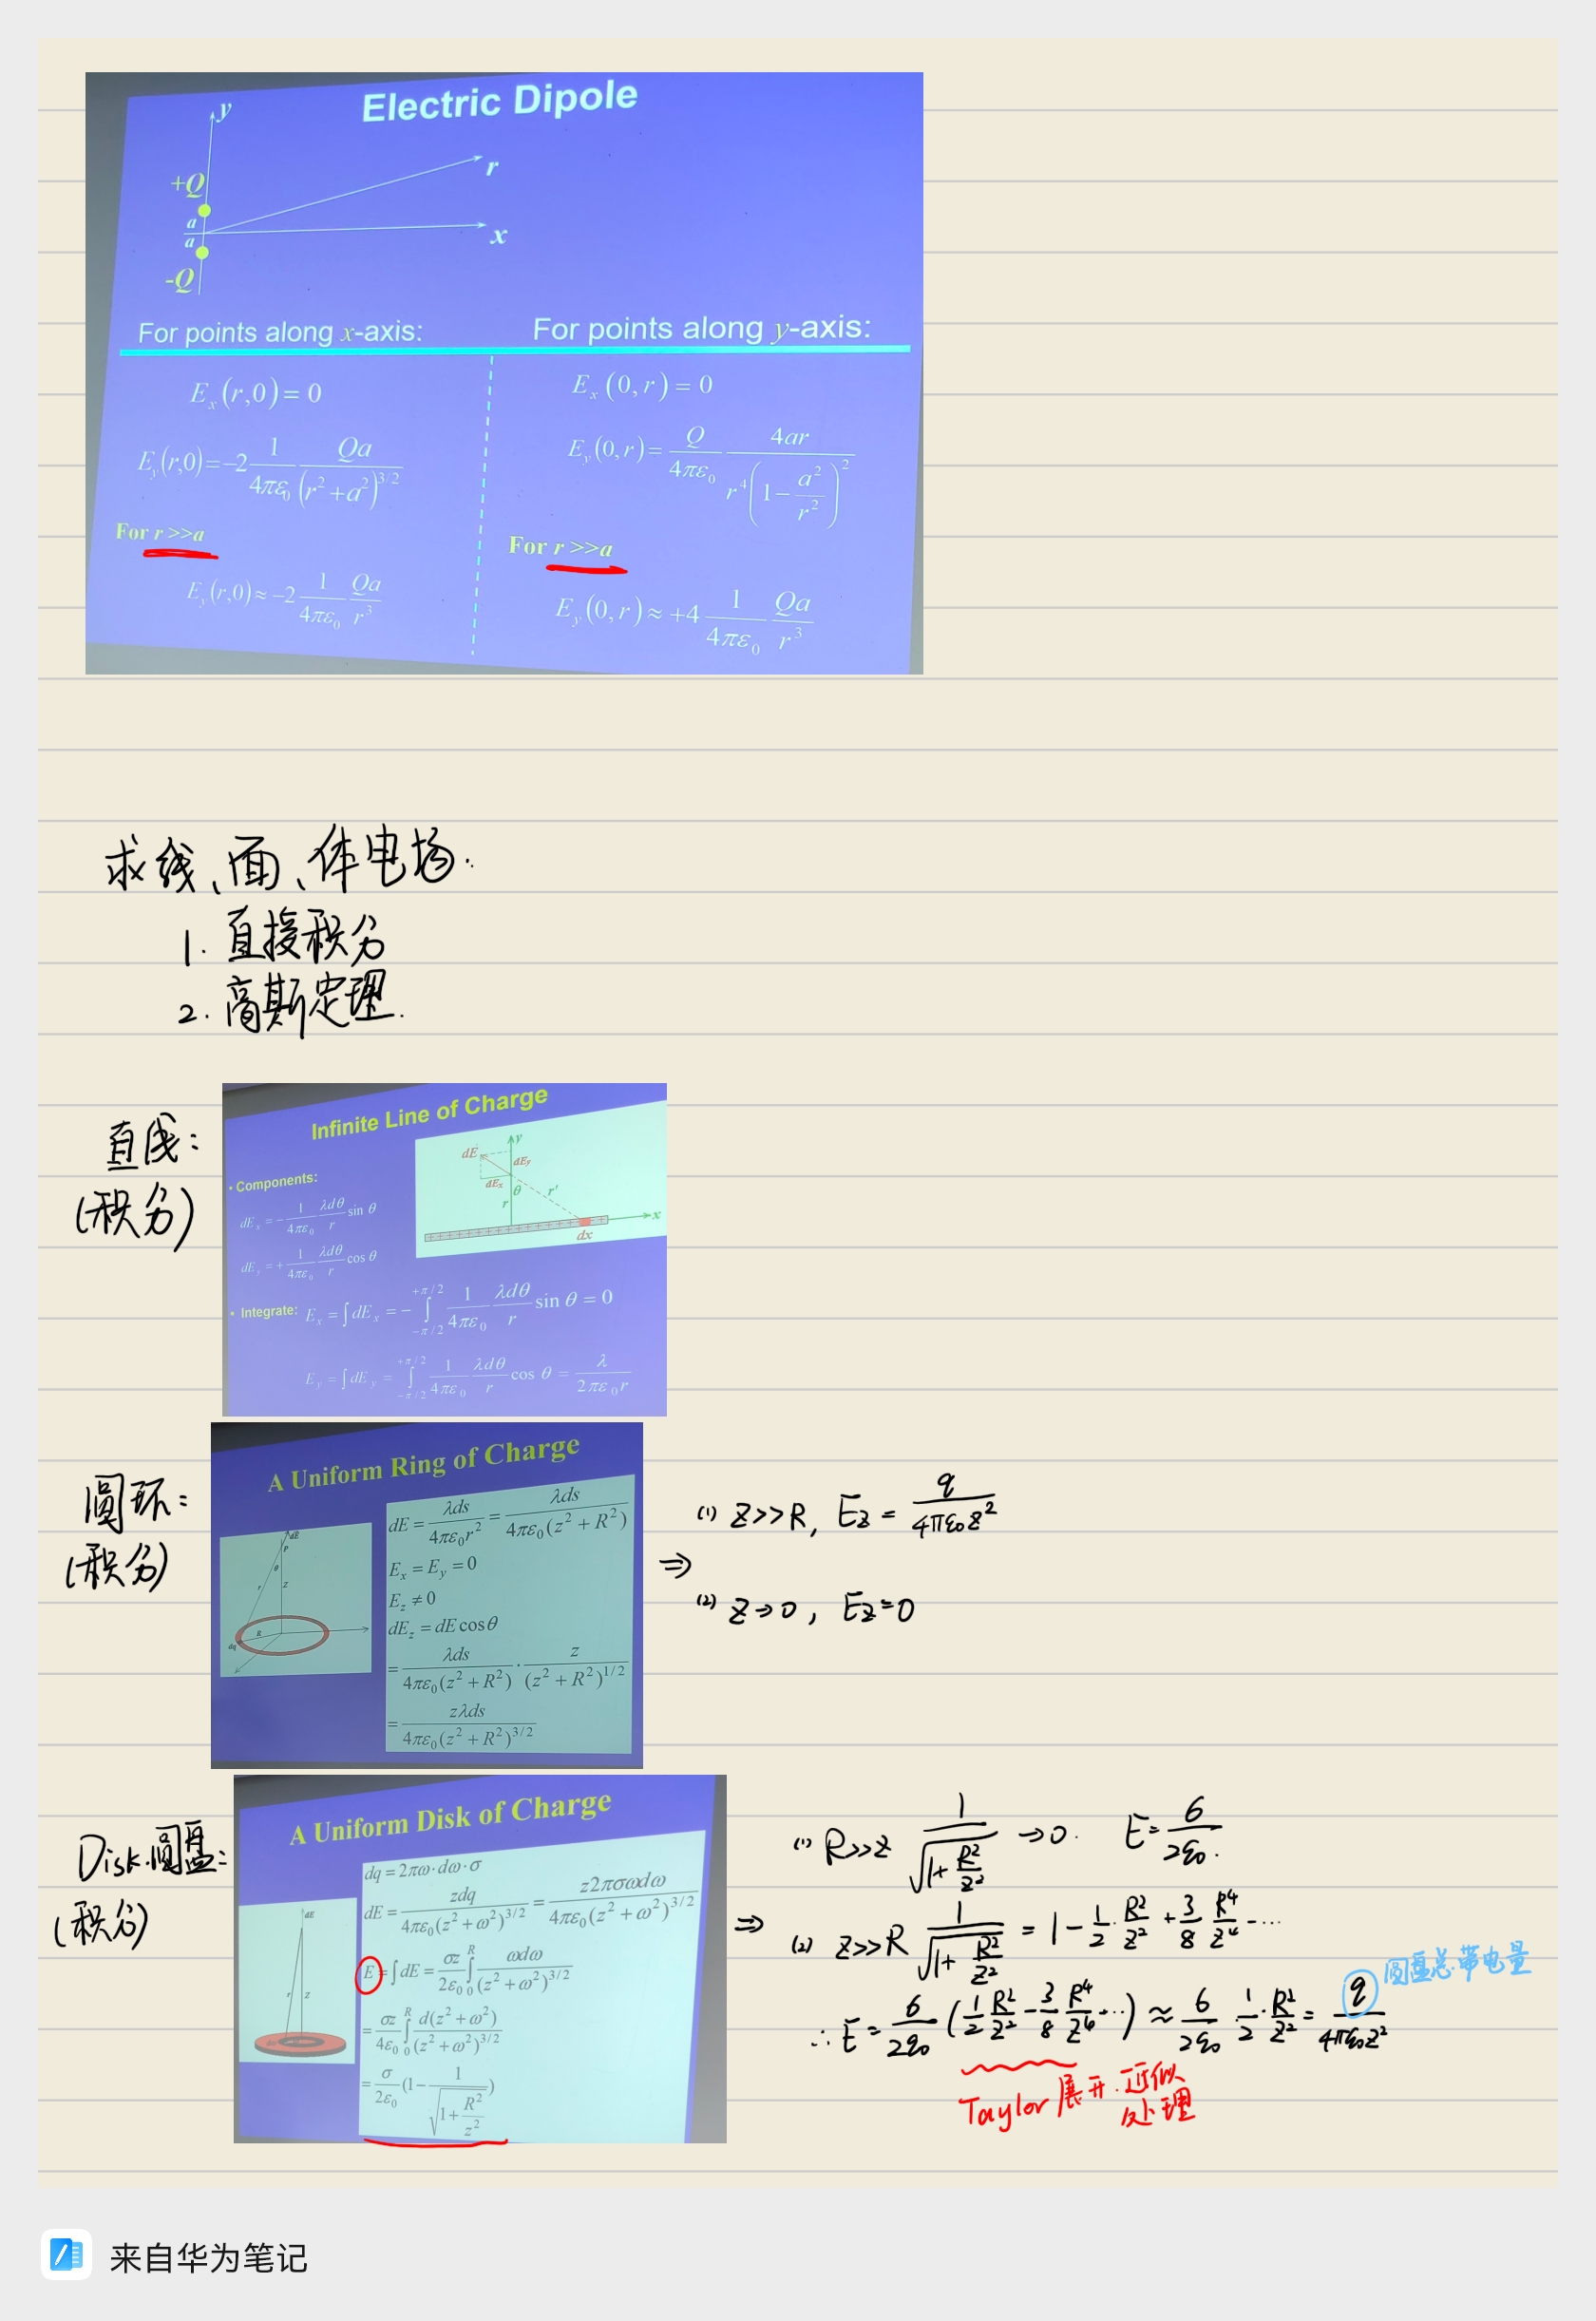 Electric Dipole
y
+Q
r
a
a
x
-Q
For points along x-axis:
For points along y-axis:
E_x(r,0) = 0
E_x(0,r) = 0
E_y(r,0) = -2 1/(4πε_0) Qa/(r^2+a^2)^{3/2}
E_y(0,r) = Q/(4πε_0) 4ar/(r^4(1-a^2/r^2)^2)
For r >>a
For r >>a
E_y(r,0) ≈ -2 1/(4πε_0) Qa/r^3
E_y(0,r) ≈ +4 1/(4πε_0) Qa/r^3
求线、面、体电场.
1. 直接积分
2. 高斯定理.
直线:
(积分)
Infinite Line of Charge
• Components:
dE_x = - 1/(4πε_0) λdθ/r sin θ
dE_y = + 1/(4πε_0) λdθ/r cos θ
y
dE
dE_y
dE_x
θ
r'
r
x
dx
• Integrate: E_x = ∫dE_x = -∫_{-π/2}^{+π/2} 1/(4πε_0) λdθ/r sin θ = 0
E_y = ∫dE_y = ∫_{-π/2}^{+π/2} 1/(4πε_0) λdθ/r cos θ = λ/(2πε_0 r)
圆环:
(积分)
A Uniform Ring of Charge
dE
P
θ
r
Z
R
dq
dE = λds/(4πε_0 r^2) = λds/(4πε_0(z^2+R^2))
E_x = E_y = 0
E_z ≠ 0
dE_z = dE cosθ
= λds/(4πε_0(z^2+R^2)) · z/(z^2+R^2)^{1/2}
= zλds/(4πε_0(z^2+R^2)^{3/2})
⇒
(1) z>>R, Ez = q/(4πε_0z^2)
(2) z→0, Ez=0
Disk.圆盘:
(积分)
A Uniform Disk of Charge
dE
r
Z
dq = 2πω·dω·σ
dE = zdq/(4πε_0(z^2+ω^2)^{3/2}) = z2πσωdω/(4πε_0(z^2+ω^2)^{3/2})
E = ∫dE = σz/(2ε_0) ∫_0^R ωdω/(z^2+ω^2)^{3/2}
= σz/(4ε_0) ∫_0^R d(z^2+ω^2)/(z^2+ω^2)^{3/2}
= σ/(2ε_0) (1 - 1/√(1+R^2/z^2))
⇒
(1) R>>z 1/√(1+R^2/z^2) →0. E=σ/(2ε_0).
(2) z>>R 1/√(1+R^2/z^2) = 1 - 1/2·R^2/z^2 + 3/8 R^4/z^4 - ···
圆盘总带电量
∴ E = σ/(2ε_0) (1/2 R^2/z^2 - 3/8 R^4/z^4 ···) ≈ σ/(2ε_0) 1/2·R^2/z^2 = q/(4πε_0z^2)
Taylor 展开.近似
处理
来自华为笔记